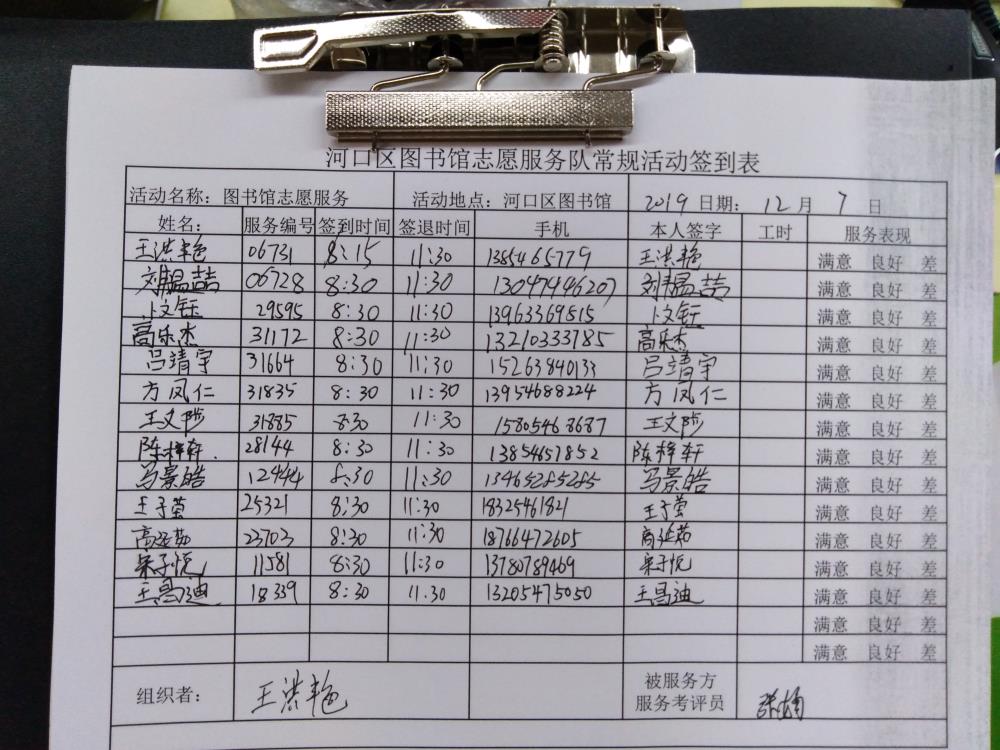 河口区图书馆志愿服务队常规活动签到表
活动名称：图书馆志愿服务 活动地点：河口区图书馆 2019 日期： 12 月 7 日
姓名： 服务编号 签到时间 签退时间 手机 本人签字 工时 服务表现
王洪艳 06731 8:15 11:30 13854665779 王洪艳 满意 良好 差
06728 8:30 11:30 13047446207 满意 良好 差
29595 8:30 11:30 13963369815 满意 良好 差
高乐杰 31172 8:30 11:30 13210333785 高乐杰 满意 良好 差
吕靖宇 31664 8:30 11:30 15263840133 吕靖宇 满意 良好 差
方凤仁 31835 8:30 11:30 13954688224 方凤仁 满意 良好 差
31885 8:30 11:30 15805468687 满意 良好 差
陈梓轩 28144 8:30 11:30 13854657852 陈梓轩 满意 良好 差
马景皓 12444 8:30 11:30 13465285285 马景皓 满意 良好 差
王子萤 25321 8:30 11:30 18325461821 王子萤 满意 良好 差
23703 8:30 11:30 18766472605 满意 良好 差
宋子悦 11581 8:30 11:30 13780789469 宋子悦 满意 良好 差
王昌迪 18339 8:30 11:30 13205475050 王昌迪 满意 良好 差
满意 良好 差
满意 良好 差
组织者： 王洪艳 被服务方
服务考评员